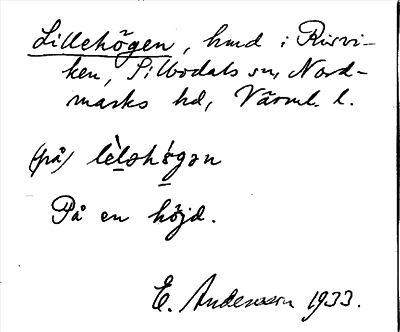 Lillehögen, hmd i Risvi-
ken, Silbodals sn, Nord-
marks hd, Värml. l.
(på)
På en höjd.
E. Andersson 1933.